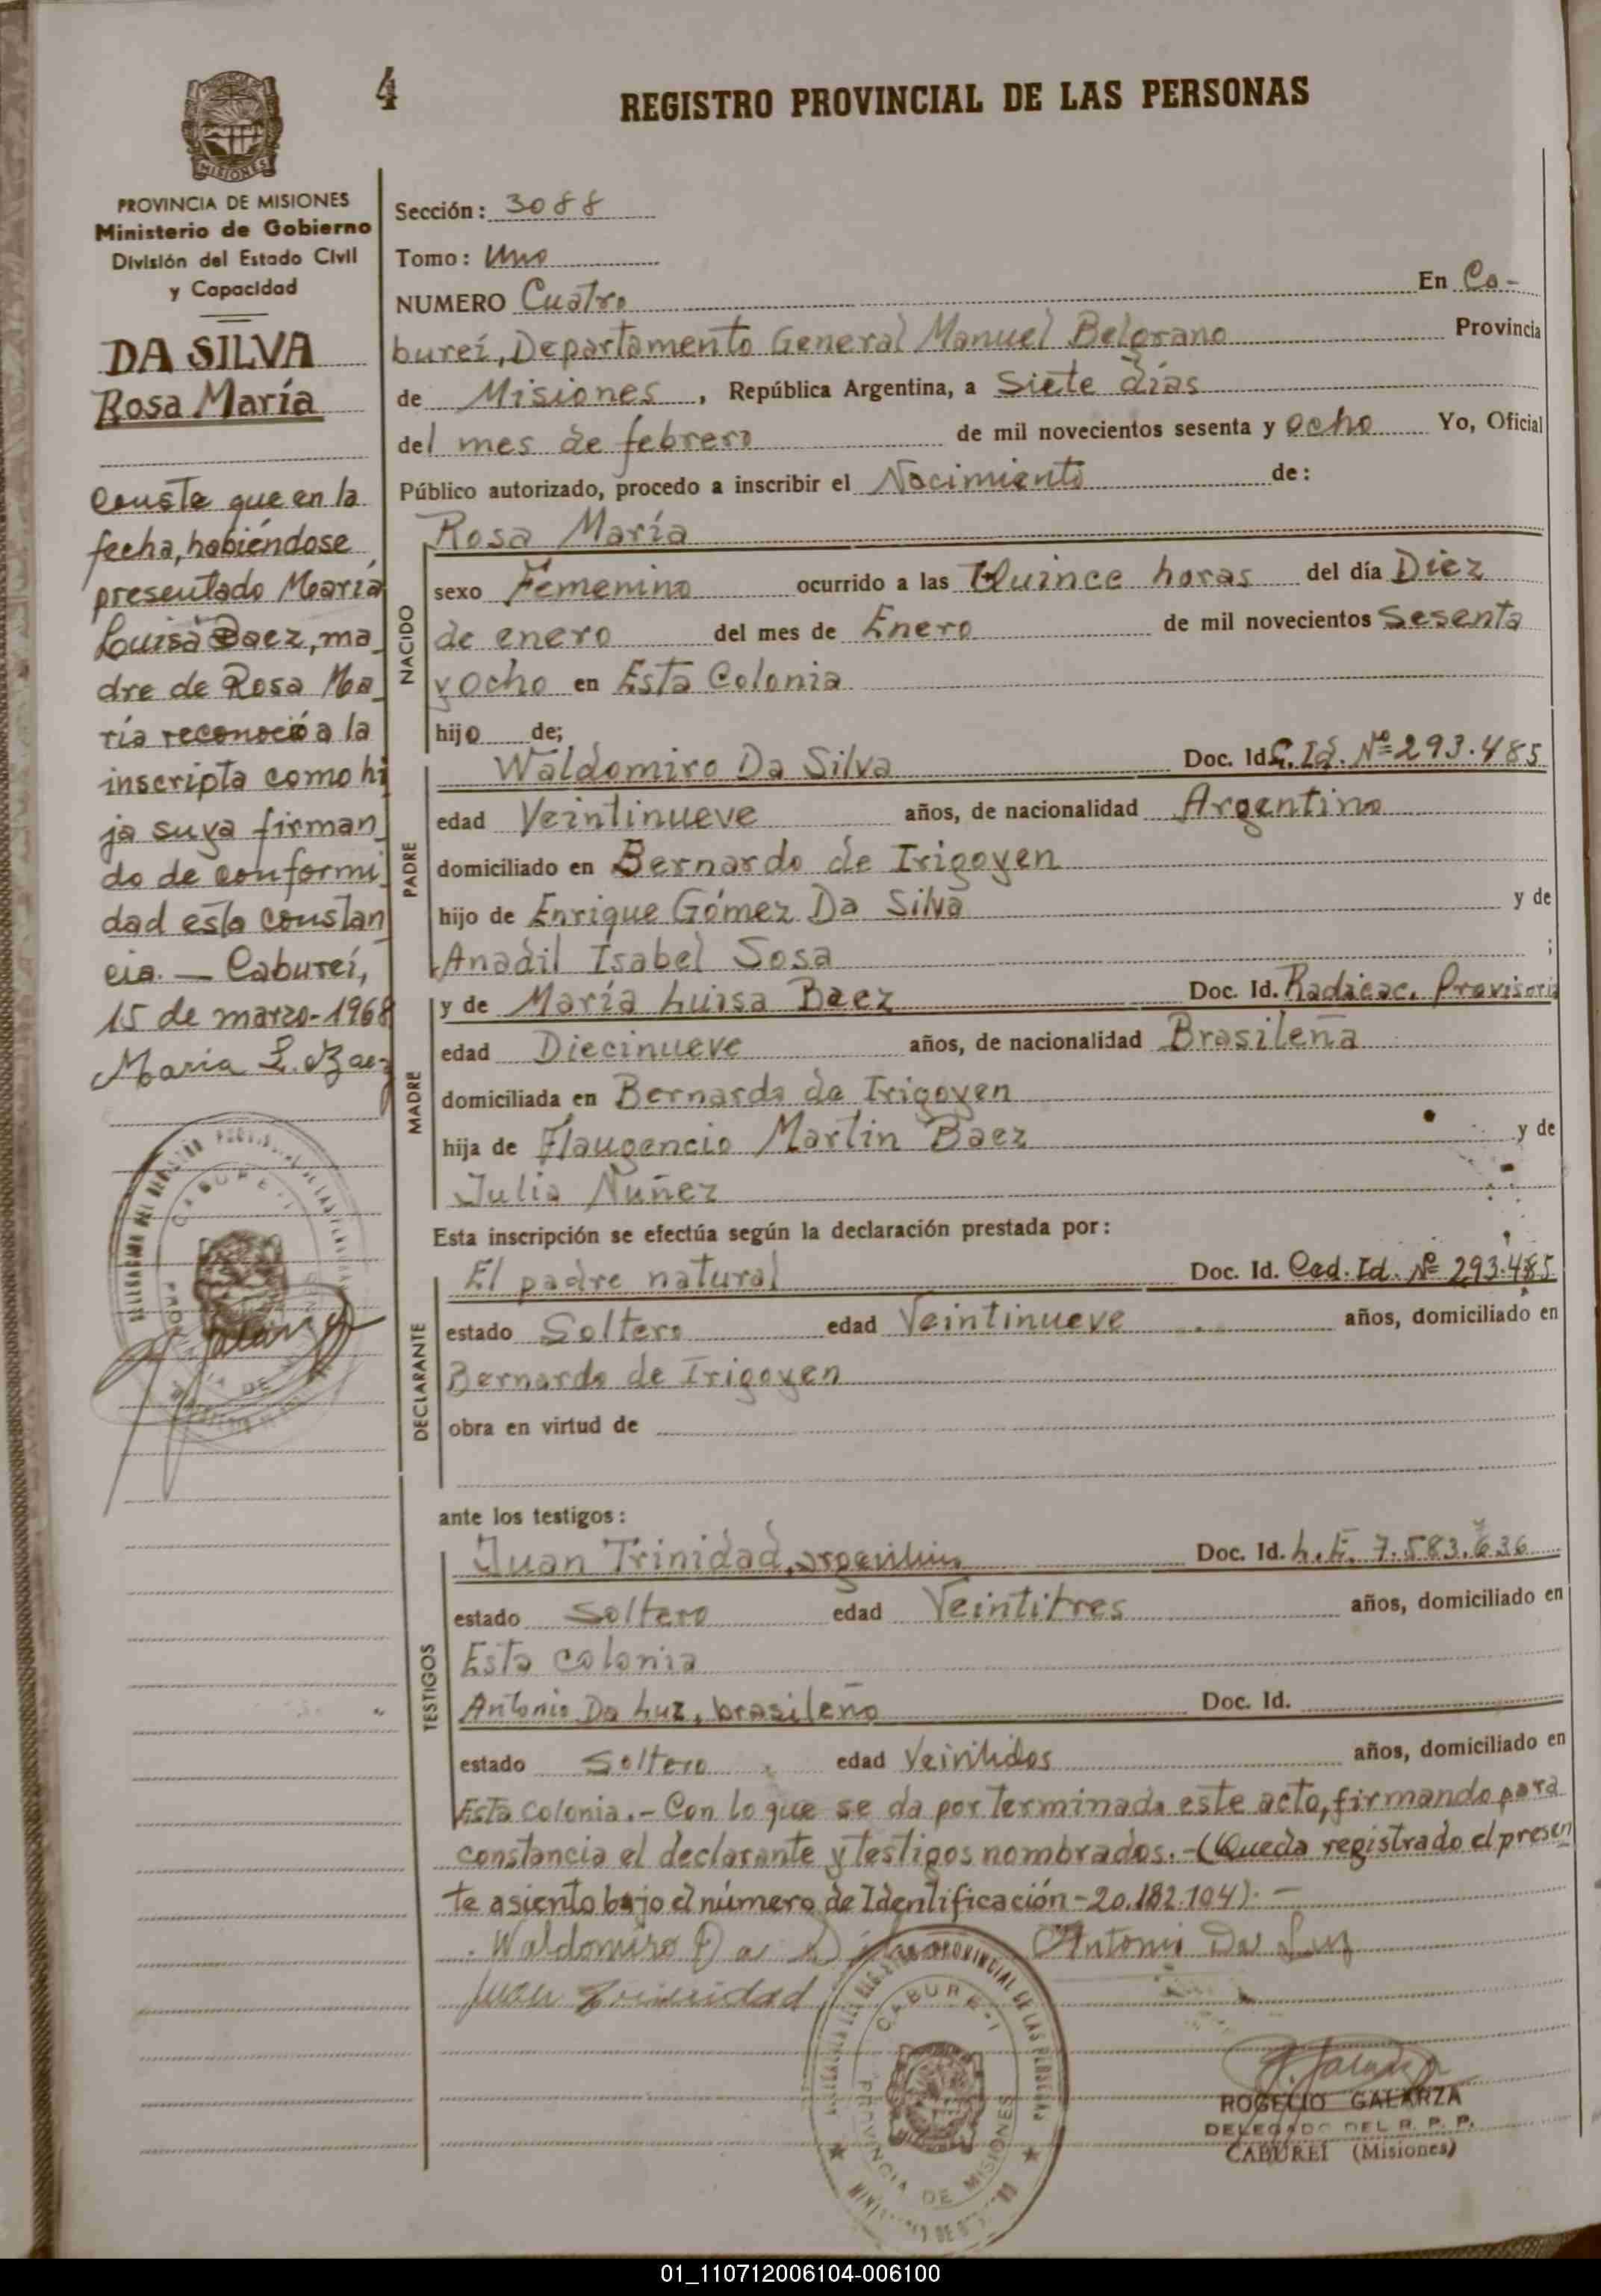 4
REGISTRO PROVINCIAL DE LAS PERSONAS
MISIONES
PROVINCIA DE MISIONES
Ministerio de Gobierno
División del Estado Civil
y Capacidad
DA SILVA
Rosa María
Conste que en la
fecha, habiéndose
presentado María
Louisa Baez, ma
dre de Rosa Ma
ría reconoció a la
inscripta como hi
ja suya firman
do de conformi
dad esta constan
cia. — Cabureí,
15 de marzo-1968
Maria L. Baez
CABURE-I
Sección: 3088
Tomo: Uno
NUMERO Cuatro En Ca-
bureí, Departamento General Manuel Belgrano Provincia
de Misiones, República Argentina, a Siete días
del mes de febrero de mil novecientos sesenta y ocho Yo, Oficial
Público autorizado, procedo a inscribir el Nacimiento de:
Rosa María
NACIDO
sexo Femenino ocurrido a las Quince horas del día Diez
de enero del mes de Enero de mil novecientos Sesenta
y Ocho en Esta Colonia
hijo de;
PADRE
Waldomiro Da Silva Doc. Id. C. Id. Nº 293.485
edad Veintinueve años, de nacionalidad Argentino
domiciliado en Bernardo de Irigoyen
hijo de Enrique Gómez Da Silva y de
Anadil Isabel Sosa ;
MADRE
y de María Luisa Baez Doc. Id. Radicac. Provisoria
edad Diecinueve años, de nacionalidad Brasileña
domiciliada en Bernardo de Irigoyen
hija de Flaugencio Martin Baez y de
Julia Nuñez
Esta inscripción se efectúa según la declaración prestada por:
DECLARANTE
El padre natural Doc. Id. Ced. Id. Nº 293.485
estado Soltero edad Veintinueve años, domiciliado en
Bernardo de Irigoyen
obra en virtud de
ante los testigos:
TESTIGOS
Juan Trinidad, argentino Doc. Id. L. E. 7.583.636
estado Soltero edad Veintitres años, domiciliado en
Esta colonia
Antonio Da Luz, brasileño Doc. Id.
estado Soltero edad Veintidos años, domiciliado en
Esta colonia.- Con lo que se da por terminado este acto, firmando para
constancia el declarante y testigos nombrados.-(Queda registrado el presen
te asiento bajo el número de Identificación-20.182.104).—
Waldomiro Da Antonio Da Luz
Juan Trinidad
CABURE-I
PROVINCIA DE MISIONES
ROGELIO GALARZA
DELEGADO DEL R. P. P.
CABUREÍ (Misiones)
01_110712006104-006100